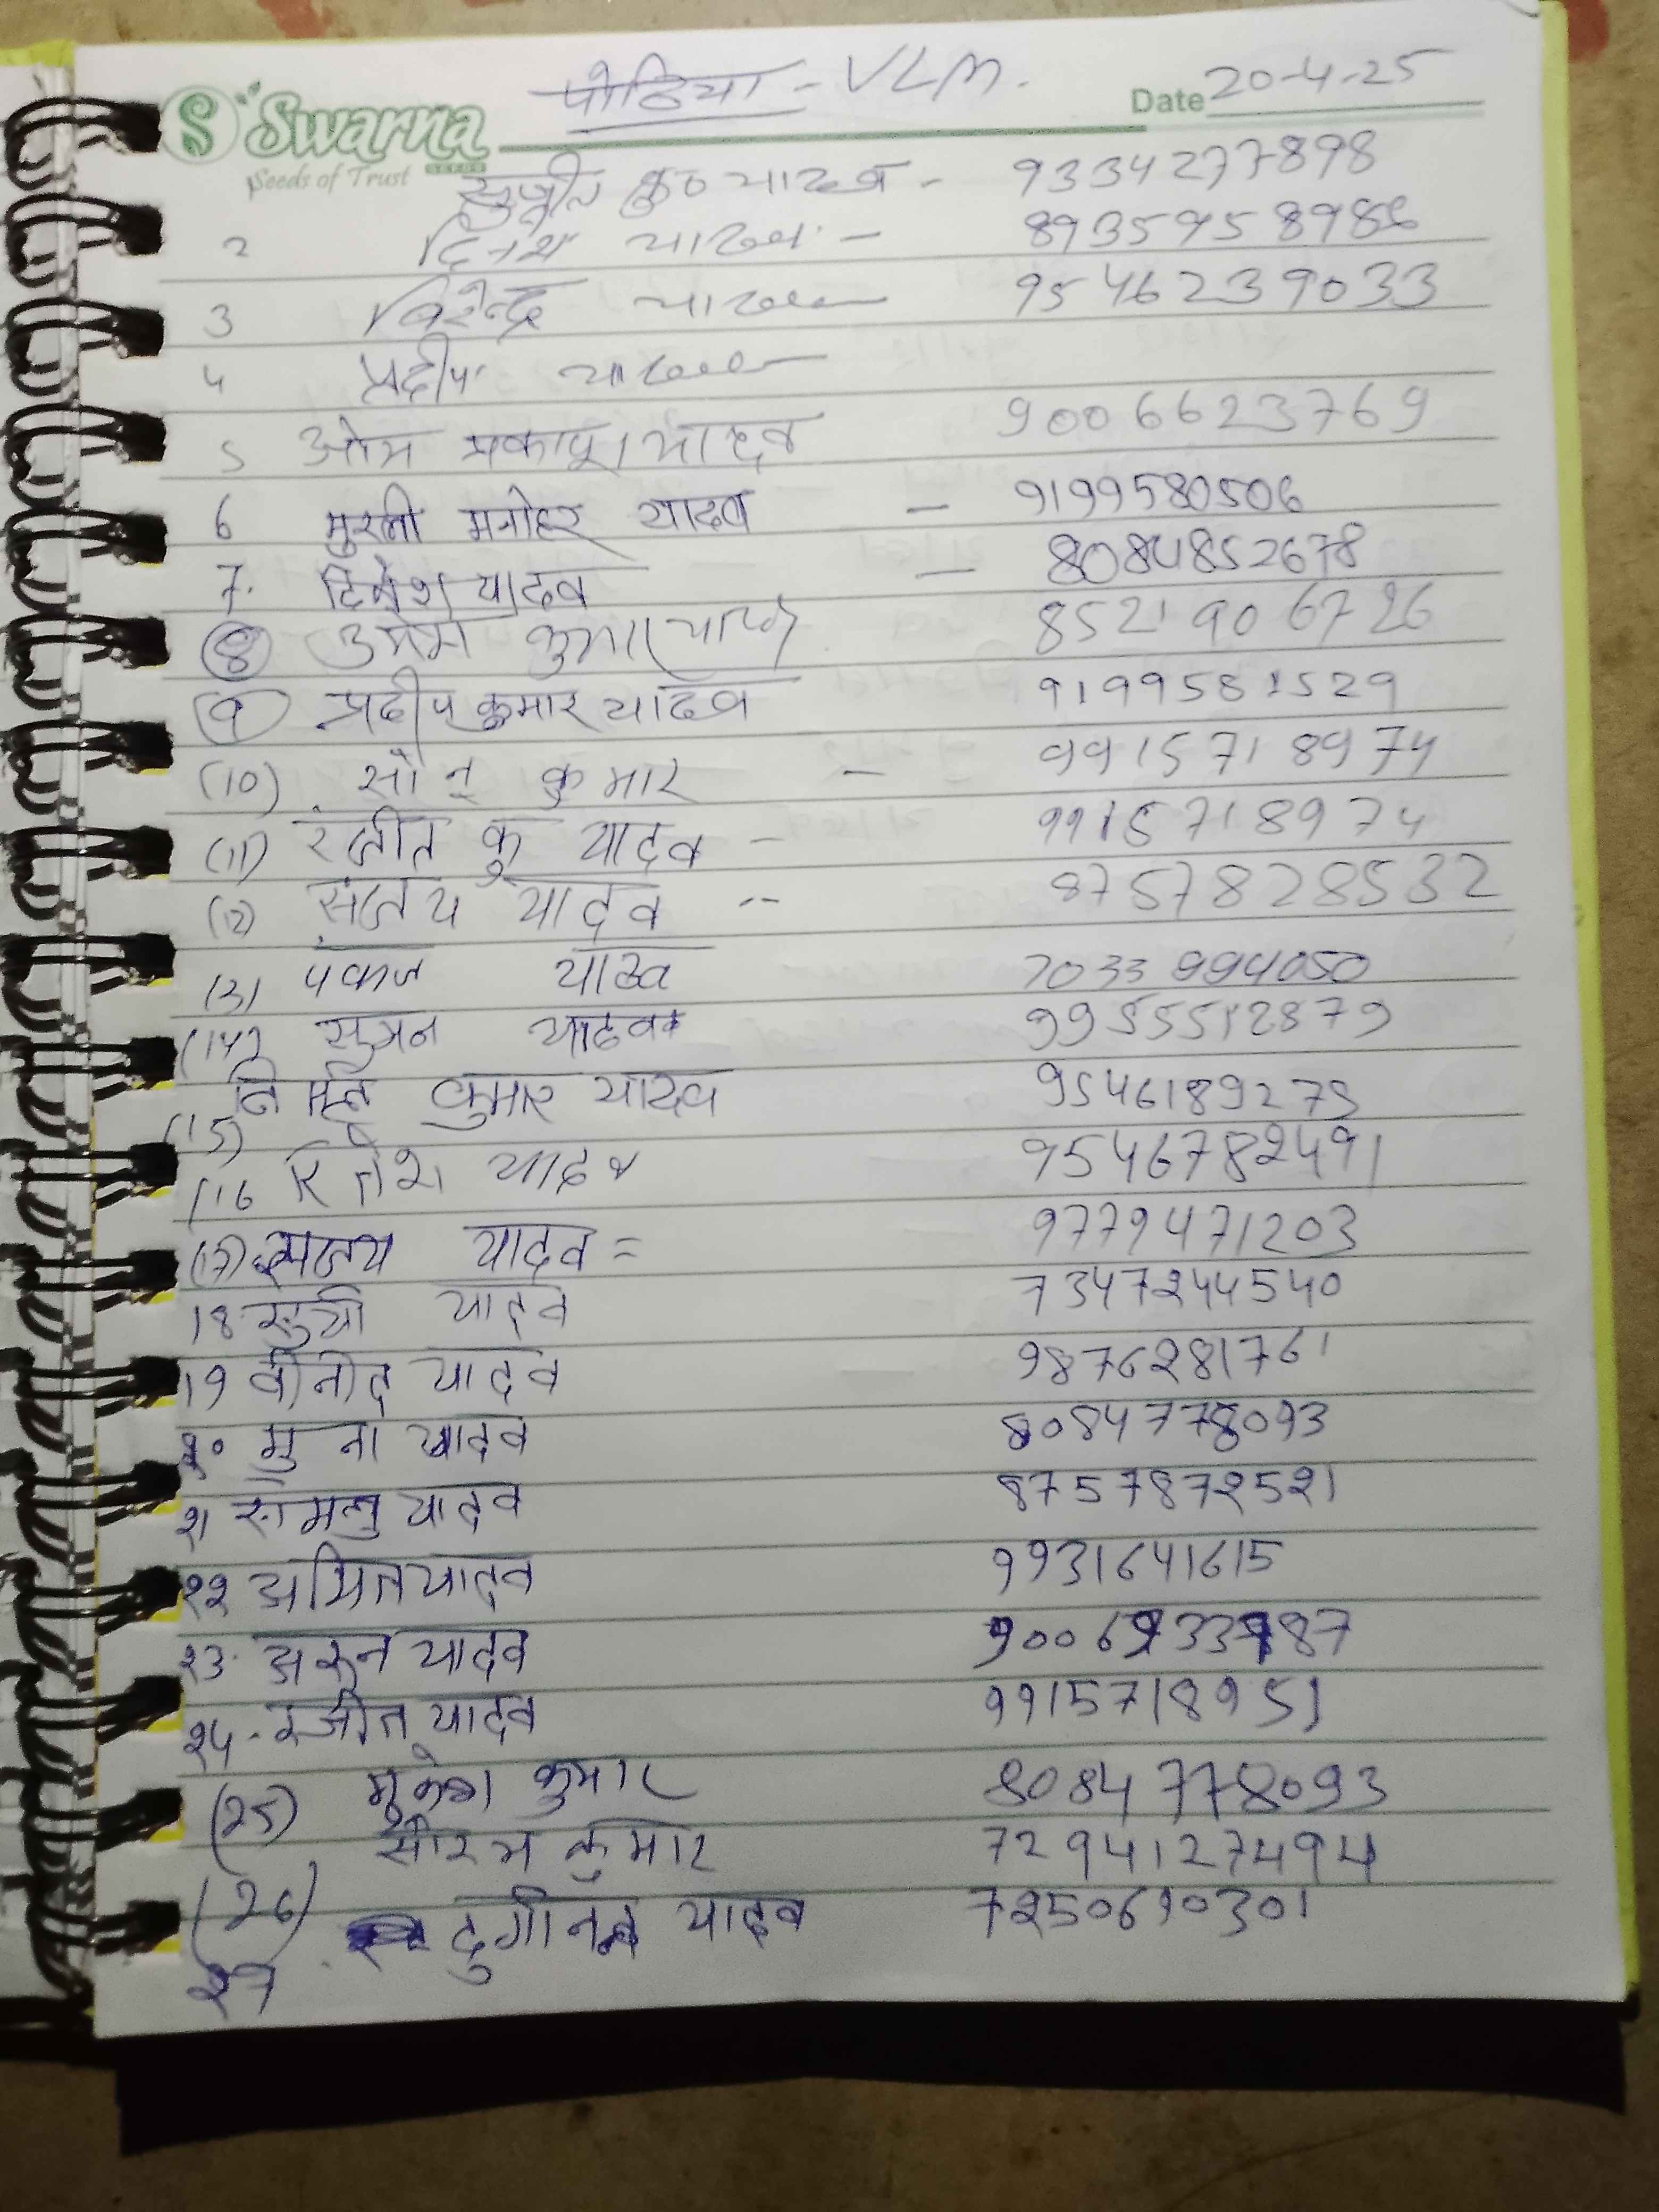 पोठिया - VLM.
Swarna Date 20-4-25
Seeds of Trust SEEDS
सुजीत कु० यादव - 9334277898
2 दिनेश यादव - 8935958986
3 विरेन्द्र यादव 9546239033
4 प्रदीप यादव
5 ओम प्रकाश यादव 9006623769
6 मुरली मनोहर यादव - 9199580506
7. दिनेश यादव - 8084852678
(8) कुमार यादव 8521906726
(9) प्रदीप कुमार यादव 9199581529
(10) सोनू कुमार - 9915718974
(11) रंजीत कु यादव - 9915718974
(12) संजय यादव -- 8757828532
(13) पंकज यादव 7033994050
(14) यादव 9955512879
(15) कुमार यादव 9546189275
(16 रितेश यादव 9546782491
(17) संजय यादव = 9779471203
18. यादव 7347244540
19 वीनोद यादव 9876281761
२० मुना यादव 8084778093
२1 यादव 8757872521
२२ अमित यादव 9931641615
२3. अरुन यादव
२४ - रंजीत यादव 9915718951
(25) मुकेश कुमार 8084778093
(26) सौरभ कुमार 7294127494
२7. यादव 7250690301